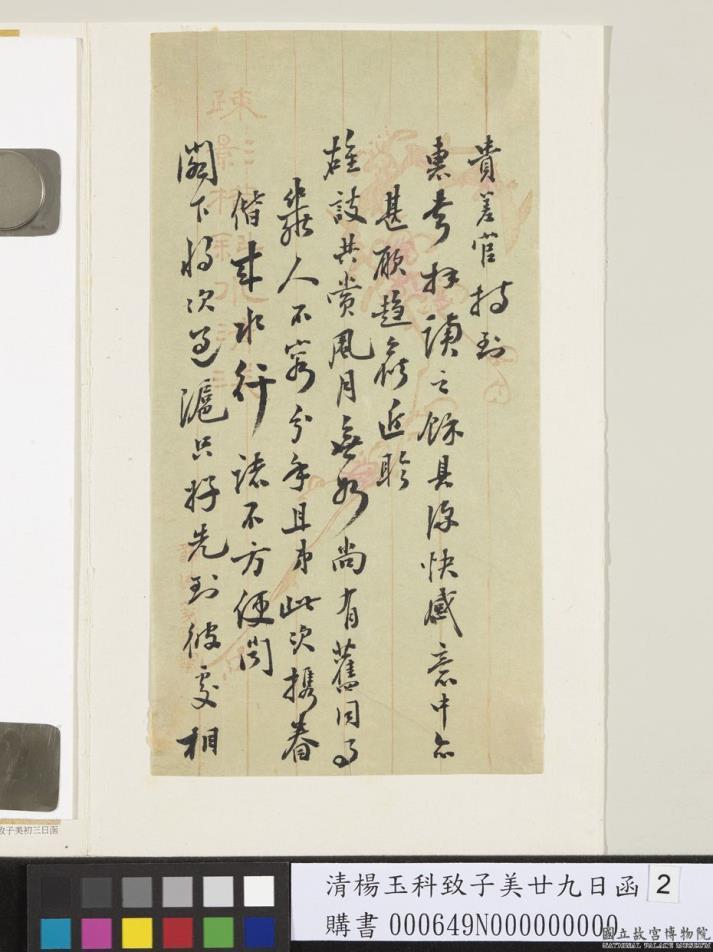 貴差官持到
惠書拜讀之餘具深快感意中亦
甚願趨前近聆
雄談共賞風月無如尚有舊同事
棄人不忍分手且弟此次攜眷
偕來水行諸不方便聞
閣下將次過滬只好先到彼處相
疎景橫斜水
致子美初三日函
清楊玉科致子美廿九日函 2
購書 000649N000000000
國立故宮博物院
NATIONAL PALACE MUSEUM